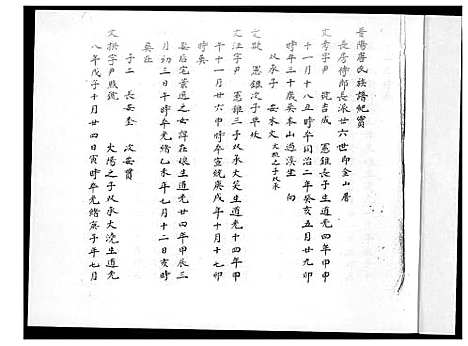 晋陽唐氏族譜紀實
長房傳郎長派廿六世印金山厝
文孝字尹 號吉成 憲雄長子生道光四年甲申
十一月十八丑時卒同治二年癸亥五月廿九卯
時年三十歲葬本山過溪坐 向
以承子 安本文 大撓之子以承
文敢 憲雄次子早故
文江字尹 憲雄三子以承大笑生道光十四年甲
午十一月廿六申時卒宣統庚戌年十月十七卯
時葬
娶后宅葉通之女諱在娘生道光廿四年甲辰三
月初三日午時卒光緒乙未年七月十二日亥時
葬在
子二 長安奎 次安貫
文拱字尹 號 大陽之子以承大澆生道光
八年戊子十月廿四日寅時卒光緒庚子年七月